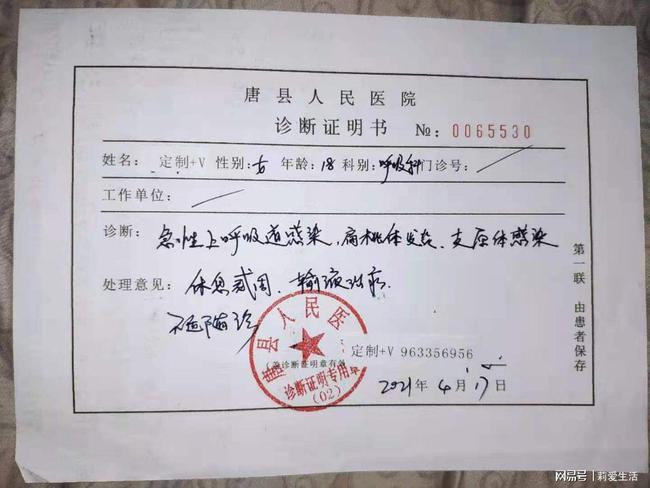 唐县人民医院
诊断证明书 №: 0065530
姓名: 定制+V 性别: 女 年龄: 18 科别: 呼吸科 门诊号:
工作单位:
诊断: 急性上呼吸道感染,扁桃体发炎、支原体感染
处理意见: 休息贰周、输液治疗
不适随诊
唐县人民医
诊断证明专用章
(02)
(盖诊断证明章有效
定制+V 963356956
2021年4月17日
第一联 由患者保存
网易号 | 莉爱生活